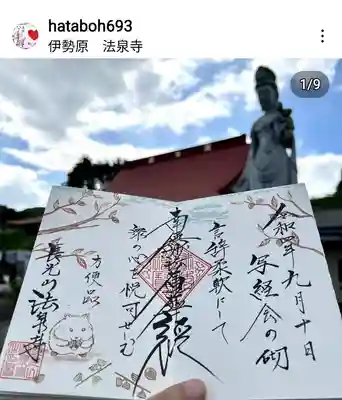 hataboh693
伊勢原　法泉寺
1/9
令和四年九月十日
写経会の砌
言辞柔軟にして
南無妙法蓮華経
衆の心を悦可せしむ
方便品
長光山法泉寺